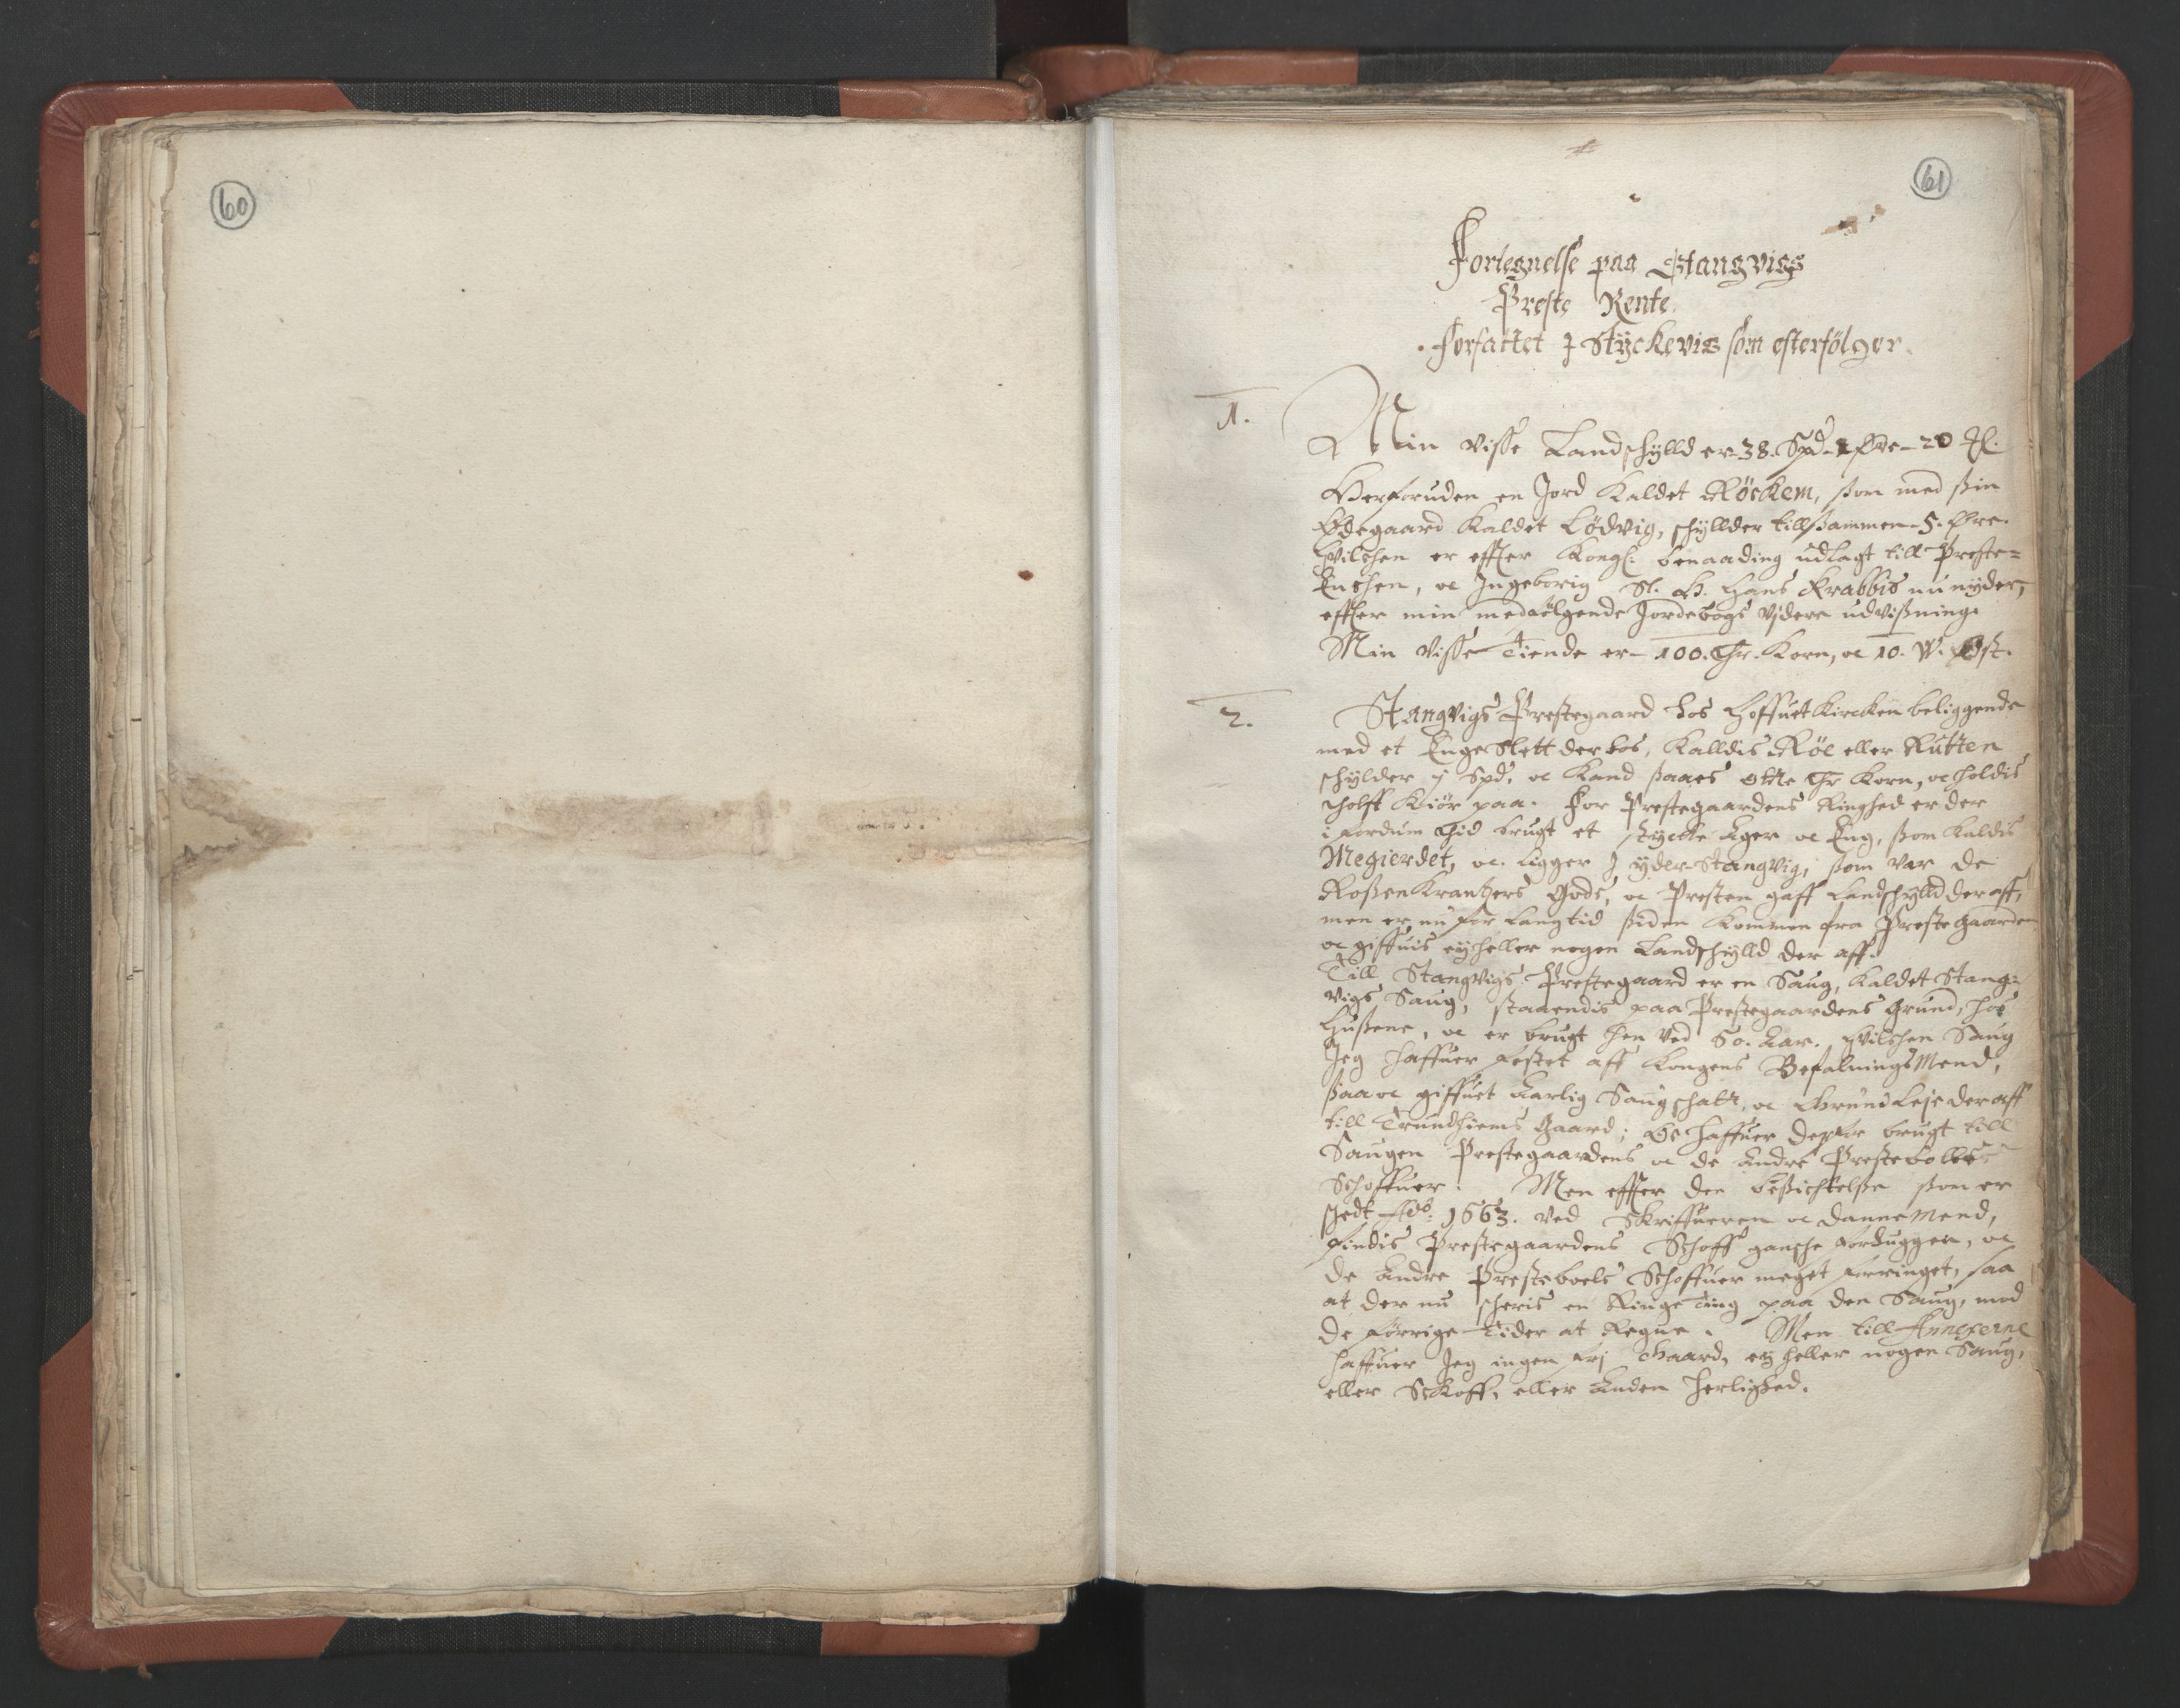 60
61
Fortegnelse paa Stangvigs
Preste Rente.
Forfattet J Styckeviis som efterfölger.
1.
Min visse Landschylld er 38. Spd - 1 Øre - 20 
Herforuden en Jord kaldet Röckem, som med sin
Ødegaard kaldet Lödvig, schyllder tillsammen 5. Øre.
Hvilchen er effter Kongl: benaading udlagt till Preste-
Enchen, oc Ingeborig Sl. H. Hans Krabbis nu nyder,
effter min medfölgende Jordebogs Videre udvissning.
Min visse Tiende er 100. Thr. Korn, oc 10. W. Ost.
2.
Stangvigs Prestegaard hos Hoffuetkircken beliggende
med et Enge Slett der hos, kalldis Röe eller Rutten
schylder j Spd, oc kand saaes Otte Thr Korn, oc holdis
tholff Kiör paa. For Prestegaardens Ringhed er der
i fordum tid brugt et stycke Ager oc Eng, som kaldis
Megierdet, oc ligger J yder Stangvig, som var de
Rosenkrantzers Gods, oc Presten gaff Landschylld deraff,
men er nu for lang tid siden kommen fra Prestegaarden
oc giffuis ey heller nogen Landschylld der aff.
Till Stangvigs Prestegaard er en Saug, kaldet Stang-
vigs Saug, staaendis paa Prestegaardens Grund, hos
Husene, oc er brugt hen ved 50. Aar. Hvilchen Saug
Jeg haffuer festet aff Kongens BefalningsMend,
saa oc giffuet Aarlig Saugschatt, oc Grundleje deraff
till Trundhiems Gaard; Oc haffuer derfor brugt till
Saugen Prestegaardens oc de Andre Prestebolles
Schoffuer. Men effter den besichtelse som er
skedt Ao: 1663. ved Skriffueren oc Dannemend,
findis Prestegaardens Schoff gansche forhuggen, oc
de Andre Presteboels Schoffuer meget forringet, saa
at der nu scheris en Ringe ting paa den Saug, mod
de forrige Tider at Regne. Men till Annexerne
haffuer Jeg ingen frj Gaard, ey heller nogen Saug,
eller Schoff, eller Anden herlighed.